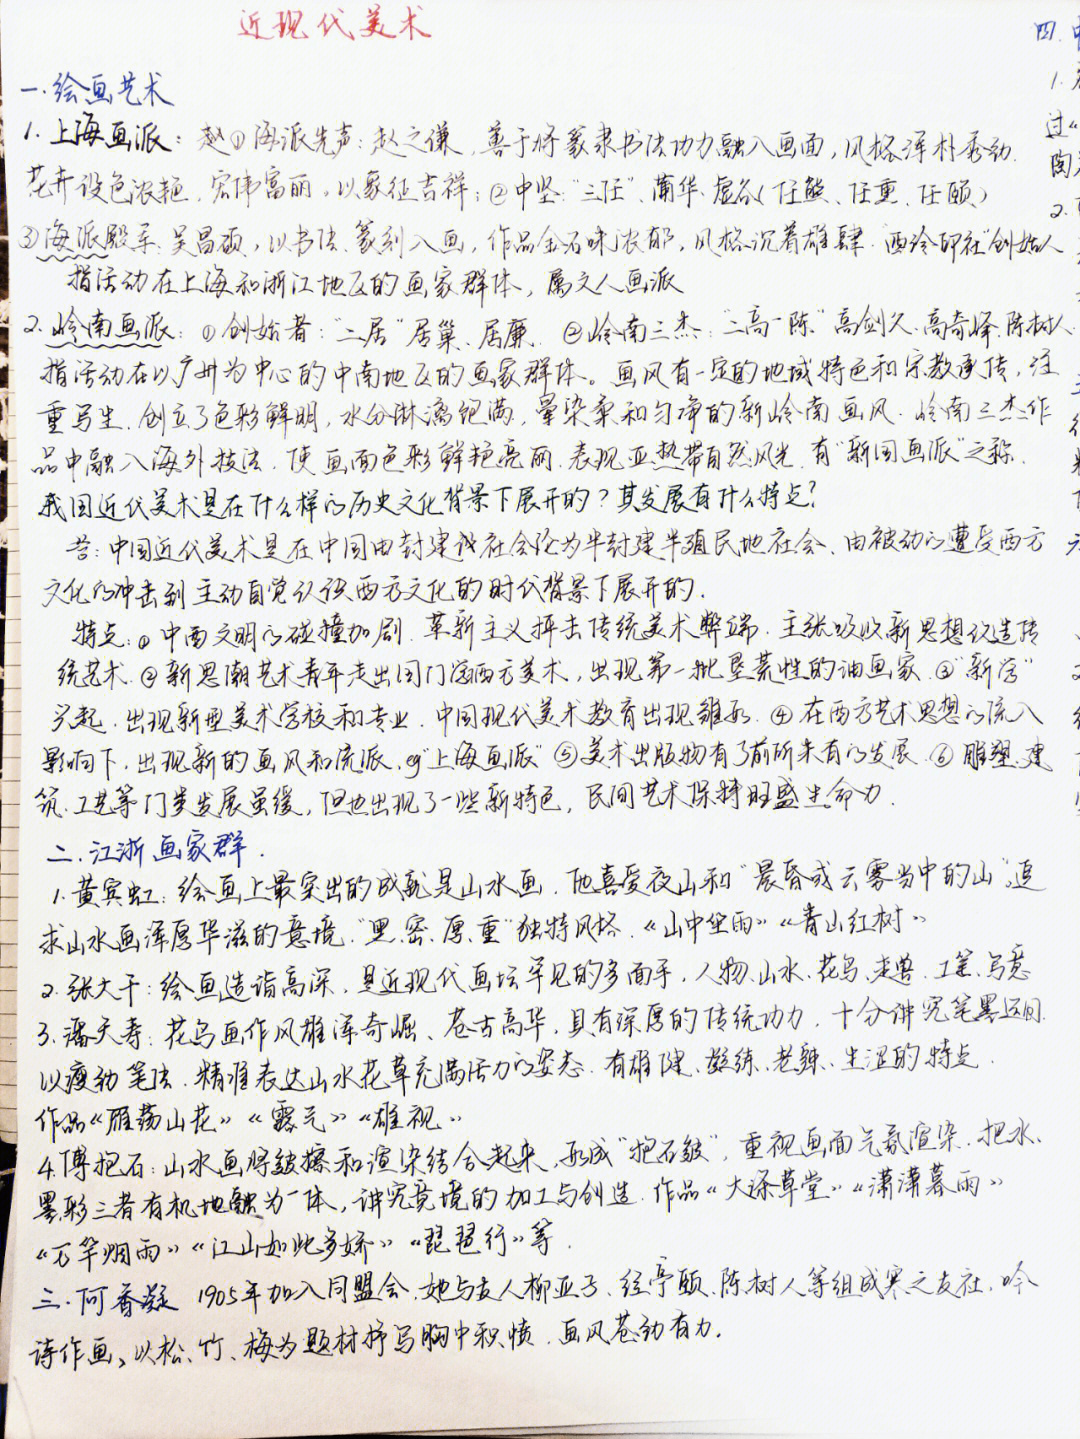 近现代美术
一.绘画艺术
1.上海画派：赵①海派先声：赵之谦，善于将篆隶书法功力融入画面，风格浑朴秀劲.
花卉设色浓艳，宏伟富丽，以象征吉祥；②中坚："三任"、蒲华、虚谷(任熊、任熏、任颐)
③海派殿军：吴昌硕，以书法、篆刻入画，作品金石味浓郁，风格沉着雄肆."西泠印社"创始人
指活动在上海和浙江地区的画家群体，属文人画派
2.岭南画派：①创始者："二居"居巢、居廉 ②岭南三杰："二高一陈"高剑父、高奇峰、陈树人
指活动在以广州为中心的中南地区的画家群体。画风有一定的地域特色和宗教承传，注
重写生.创立了色彩鲜明，水分淋漓饱满，晕染柔和匀净的新岭南画风.岭南三杰作
品中融入海外技法.使画面色彩鲜艳亮丽.表现亚热带自然风光.有"新国画派"之称.
我国近代美术是在什么样的历史文化背景下展开的？其发展有什么特点？
答：中国近代美术是在中国由封建社会沦为半封建半殖民地社会、由被动的遭受西方
文化的冲击到主动自觉认识西方文化的时代背景下展开的.
特点：①中西文明的碰撞加剧.革新主义抨击传统美术弊端.主张吸收新思想改造传
统艺术.②新思潮艺术青年走出国门学西方美术，出现第一批垦荒性的油画家.③"新学"
兴起.出现新型美术学校和专业.中国现代美术教育出现雏形.④在西方艺术思想的流入
影响下，出现新的画风和流派.eg"上海画派"⑤美术出版物有了前所未有的发展.⑥雕塑.建
筑.工艺等门类发展虽缓，但也出现了一些新特色，民间艺术保持旺盛生命力.
二.江浙画家群.
1.黄宾虹：绘画上最突出的成就是山水画.他喜爱夜山和"晨昏或云雾当中的山"，追
求山水画浑厚华滋的意境."黑、密、厚、重"独特风格.《山中坐雨》《青山红树》
2.张大千：绘画造诣高深，是近现代画坛罕见的多面手，人物、山水、花鸟、走兽、工笔、写意
3.潘天寿：花鸟画作风雄浑奇崛、苍古高华，具有深厚的传统功力，十分讲究笔墨
以瘦劲笔法.精准表达山水花草充满活力的姿态.有雄健、凝练、老辣、生涩的特点.
作品《雁荡山花》《露气》《雄视》
4.傅抱石：山水画将皴擦和渲染结合起来，形成"抱石皴"，重视画面气氛渲染.把水、
墨.彩三者有机地融为一体，讲究意境的加工与创造.作品《大涤草堂》《潇潇暮雨》
《万竿烟雨》《江山如此多娇》《琵琶行》等.
三.何香凝 1905年加入同盟会.她与友人柳亚子、经亨颐、陈树人等组成寒之友社.吟
诗作画、以松、竹、梅为题材抒写胸中积愤.画风苍劲有力.
四.中
1.
过"
陶
2.